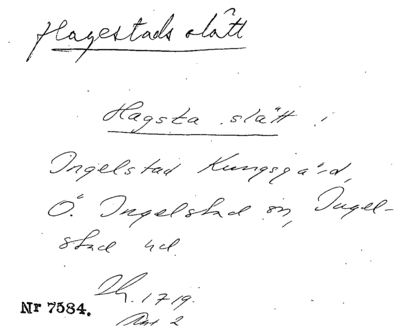 Hagestads slätt
Hagsta slätt i
Ingelstad Kungsgård,
Ö. Ingelstad sn, Ingel-
stad hd.
Lh. 1719.
Nr 7584.